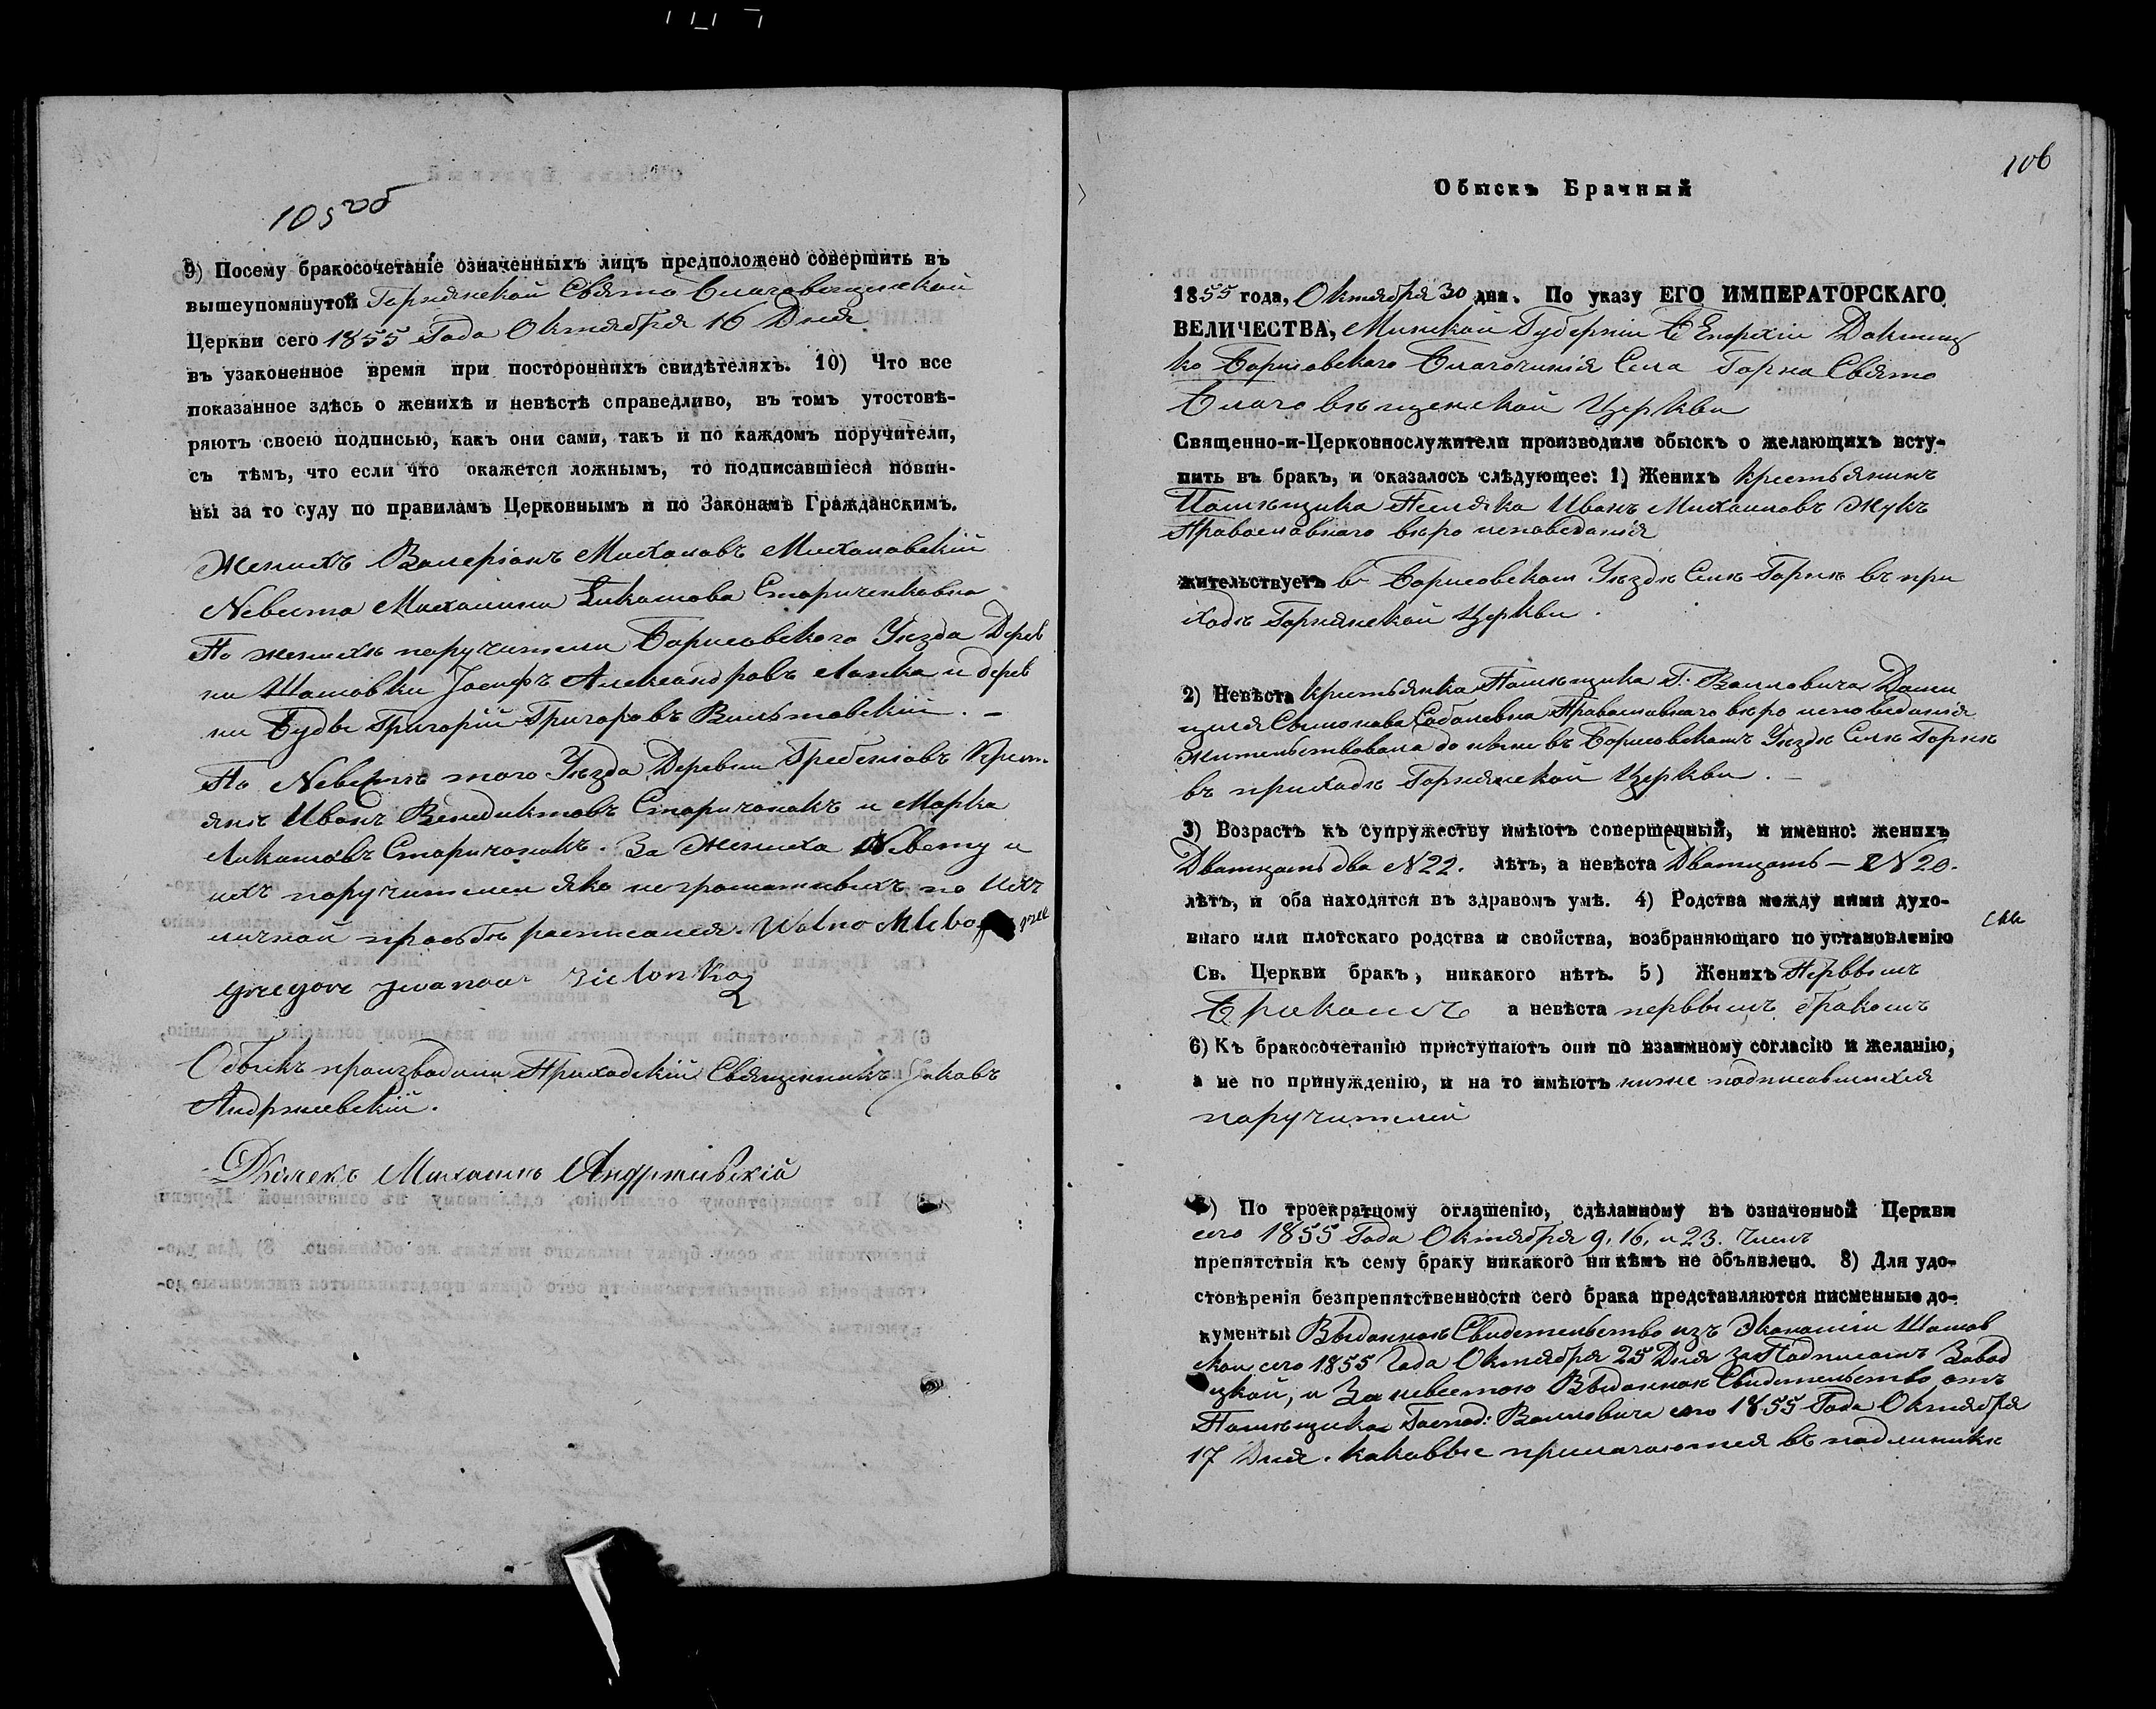 105 об
9) Посему бракосочетаніе означенныхъ лицъ предположено совершить въ
вышеупомянутой Горнянской Свято Благовещенской
Церкви сего 1855 Года Октября 16 Дня
въ узаконенное время при постороннихъ свидѣтеляхъ. 10) Что все
показанное здѣсь о женихѣ и невѣстѣ справедливо, въ томъ утостовѣ-
ряютъ своею подписью, какъ они сами, такъ и по каждомъ поручители,
съ тѣмъ, что если что окажется ложнымъ, то подписавшіеся повин-
ны за то суду по правиламъ Церковнымъ и по Законамъ Гражданскимъ.
Женихъ Валеріанъ Михаловъ Михаловскій
Nевеста Михалина Ликашова Стариченковна
По женихѣ поручители Борисовскаго Уѣзда Дерев
ни Шамовки Іосифъ Александровъ Лапка и дерев
ни Будъ Григорій Григоровъ Вильтовскій. —
По Nевестѣ того Уѣзда Деревни Гребеновъ Крест
янѣ Иванъ Венедиктовъ Старичонакъ и Марка
Ликашовъ Старичонакъ. За Жениха Nевесту и
ихъ поручителей яко неграматныхъ по ихъ
личной прозьбѣ росписался. Wolno
Gregor Jwanow
Обыскъ производили Приходскій Священникъ Іаковъ
Андржеевскій.
Дьячекъ Михаилъ Андржіевскій
106
Обыскъ Брачный
1855 года, Октября 30 дня. По указу ЕГО ИМПЕРАТОРСКАГО
ВЕЛИЧЕСТВА, Минской Губерніи Епархіи Докшиц
ко Борисовскаго Благочинія Села Горна Свято
Благовѣщенской Церкви
Священно-и-Церковнослужители производили обыскъ о желающихъ всту-
пить въ бракъ, и оказалось слѣдующее: 1) Женихъ Крестьянинъ
Помѣщика Иванъ Михаиловъ Жукъ
Православнаго вѣро исповеданія
жительствуетъ в Борисовском Уѣздѣ Селѣ Горнѣ въ при
ходѣ Горнянской Церкви.
2) Невѣста Крестьянка Помѣщика Г. Валловича Доми
Сымонова Саболевна Православнаго вѣро исповеданія
жительствовала до ныне въ Борисовскомъ Уѣздѣ Селѣ Горнѣ
въ приходѣ Горнянской Церкви. —
3) Возрастъ къ супружеству имѣютъ совершенный, и именно: женихъ
Дватцать два N 22. лѣтъ, а невѣста Дватцать — N 20.
лѣтъ, и оба находятся въ здравомъ умѣ. 4) Родства между ними духо-
внаго или плотскаго родства и свойства, возбраняющаго по установленію
Св. Церкви бракъ, никакого нѣтъ. 5) Женихъ Первымъ
Бракомъ а невѣста первымъ бракомъ
6) Къ бракосочетанію приступаютъ они по взаимному согласію и желанію,
а не по принужденію, и на то имѣютъ ниже подписавшихся
поручителей
7) По троекратному оглашенію, сдѣланному въ означенной Церкви
сего 1855 Года Октября 9, 16, и 23. Числъ
препятствія къ сему браку никакого ни кѣмъ не объявлено. 8) Для удо-
стовѣренія безпрепятственности сего брака представляются писменные до-
кументы: Выданное Свидетельство изъ Экономіи Шамов
ской сего 1855 Года Октября 25 Дня за Подписомъ Завод
цкой, и За невестою Выданное Свидетельство отъ
Помѣщика Господ: Валловича сего 1855 Года Октября
17 Дня. каковые прилагаются въ подлинникѣ